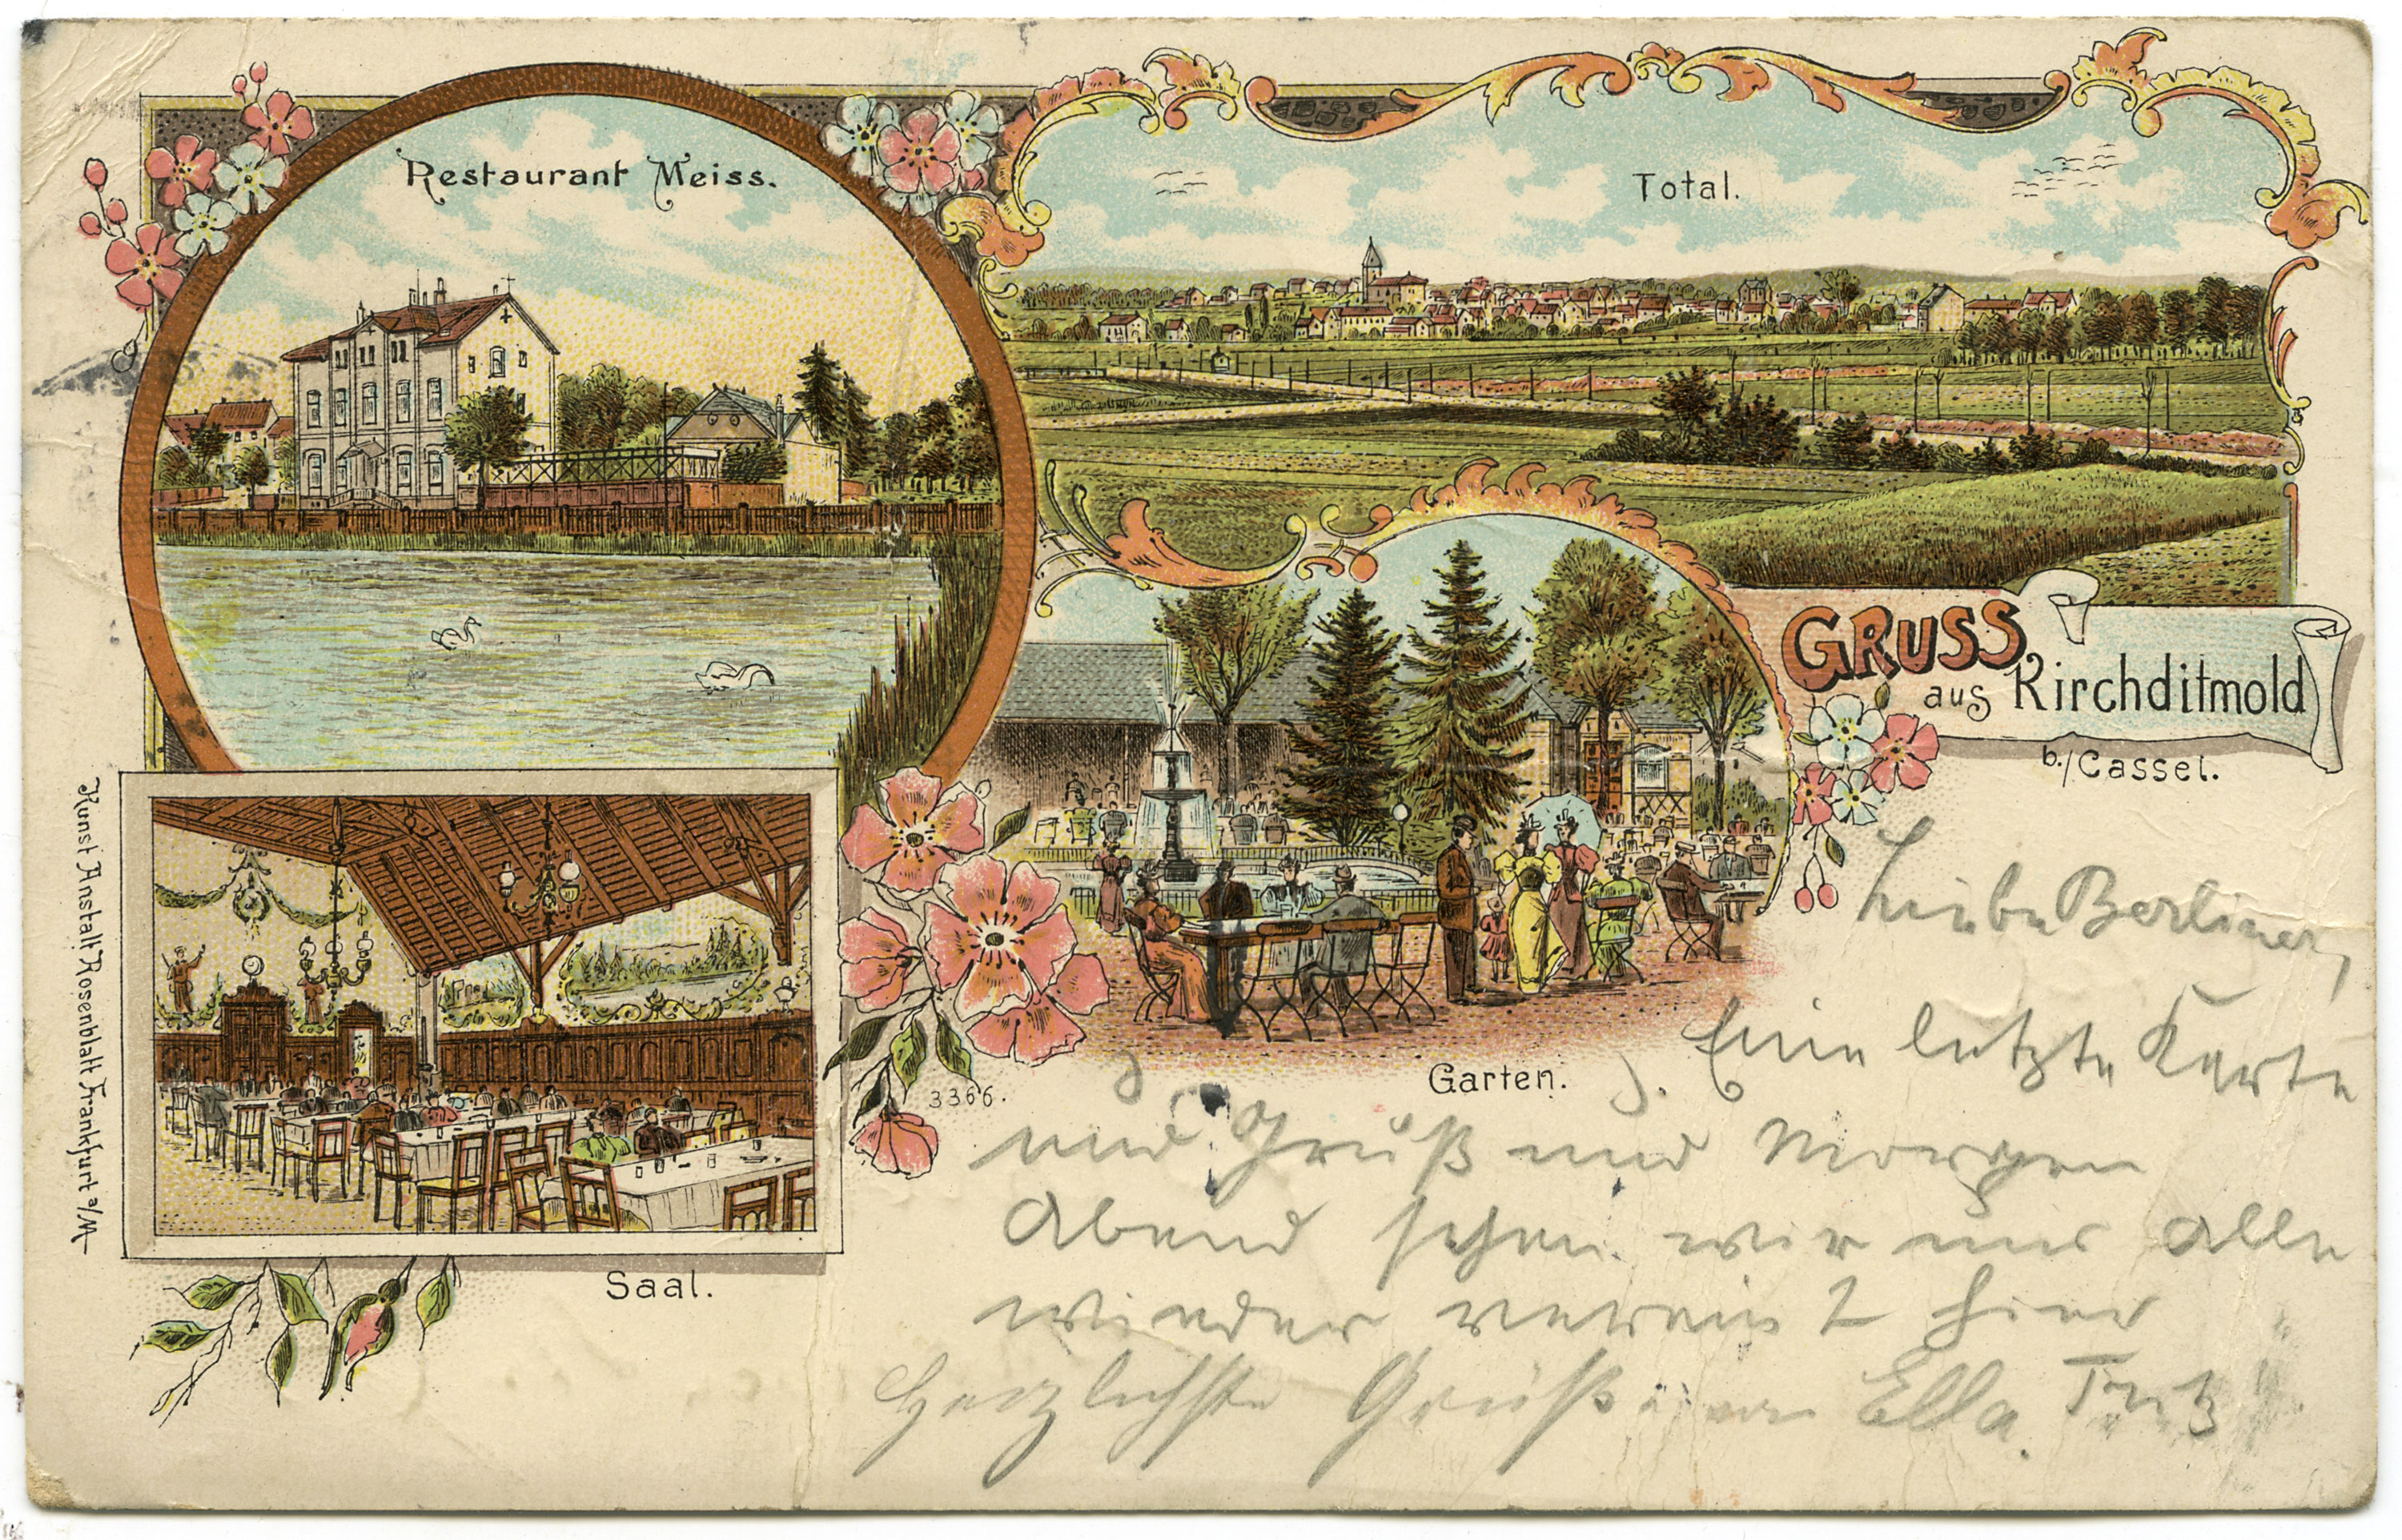 Restaurant Meiss.
Total.
GRUSS
aus Kirchditmold
b./Cassel.
Garten.
3366.
Saal.
Kunst Anstalt Rosenblatt Frankfurt a/M
Liebe Berliner,
Eine letzte Karte
und Gruß und Morgen
Abend sehen wir uns alle
wieder vereint hier
Herzlichste Grüße von Ella